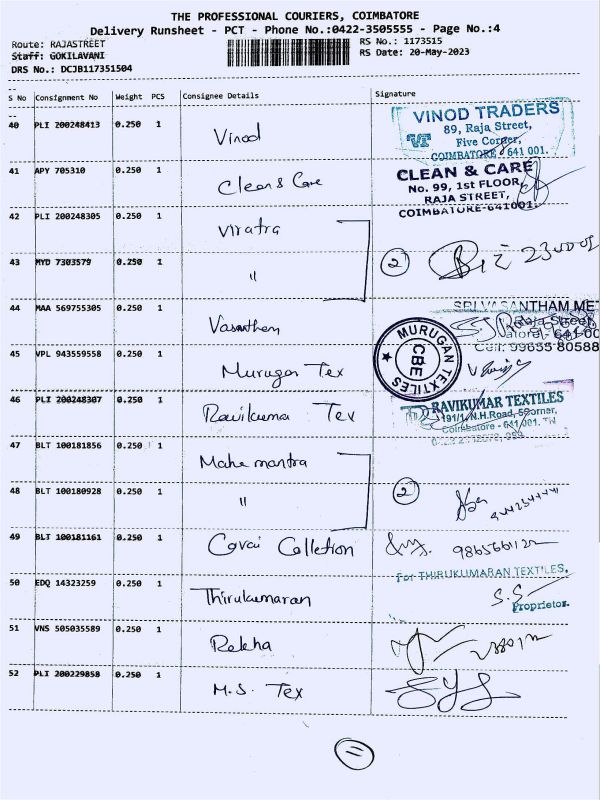 THE PROFESSIONAL COURIERS, COIMBATORE
Delivery Runsheet - PCT - Phone No.:0422-3505555 - Page No.:4
Route: RAJASTREET
RS No.: 1173515
Staff: GOKILAVANI
RS Date: 20-May-2023
DRS No.: DCJB117351504
S No Consignment No Weight PCS Consignee Details Signature
40 PLI 200248413 0.250 1 Vinod
VINOD TRADERS
89, Raja Street,
Five Corner,
COIMBATORE - 641 001.
41 APY 705310 0.250 1 Clean & Care
CLEAN & CARE
No. 99, 1st FLOOR,
RAJA STREET,
COIMBATORE-641001.
42 PLI 200248305 0.250 1 Viratra
43 MYD 7303579 0.250 1 "
2
44 MAA 569755305 0.250 1 Vasanthan
SRI VASANTHAM MET
Raja Street
Cell: 99655 80588
45 VPL 943559558 0.250 1 Murugan Tex
MURUGAN TEXTILES
CBE
46 PLI 200248307 0.250 1 Ravikumar Tex
RAVIKUMAR TEXTILES
191/1, N.H.Road, 5Corner,
Coimbatore - 641 001. TN
47 BLT 100181856 0.250 1 Mahamantra
48 BLT 100180928 0.250 1 "
2
49 BLT 100181161 0.250 1 Covai Colletion
50 EDQ 14323259 0.250 1 Thirukumaran
For THIRUKUMARAN TEXTILES,
S.S
Proprietor.
51 VNS 505035589 0.250 1 Rekha
52 PLI 200229858 0.250 1 M.S. Tex